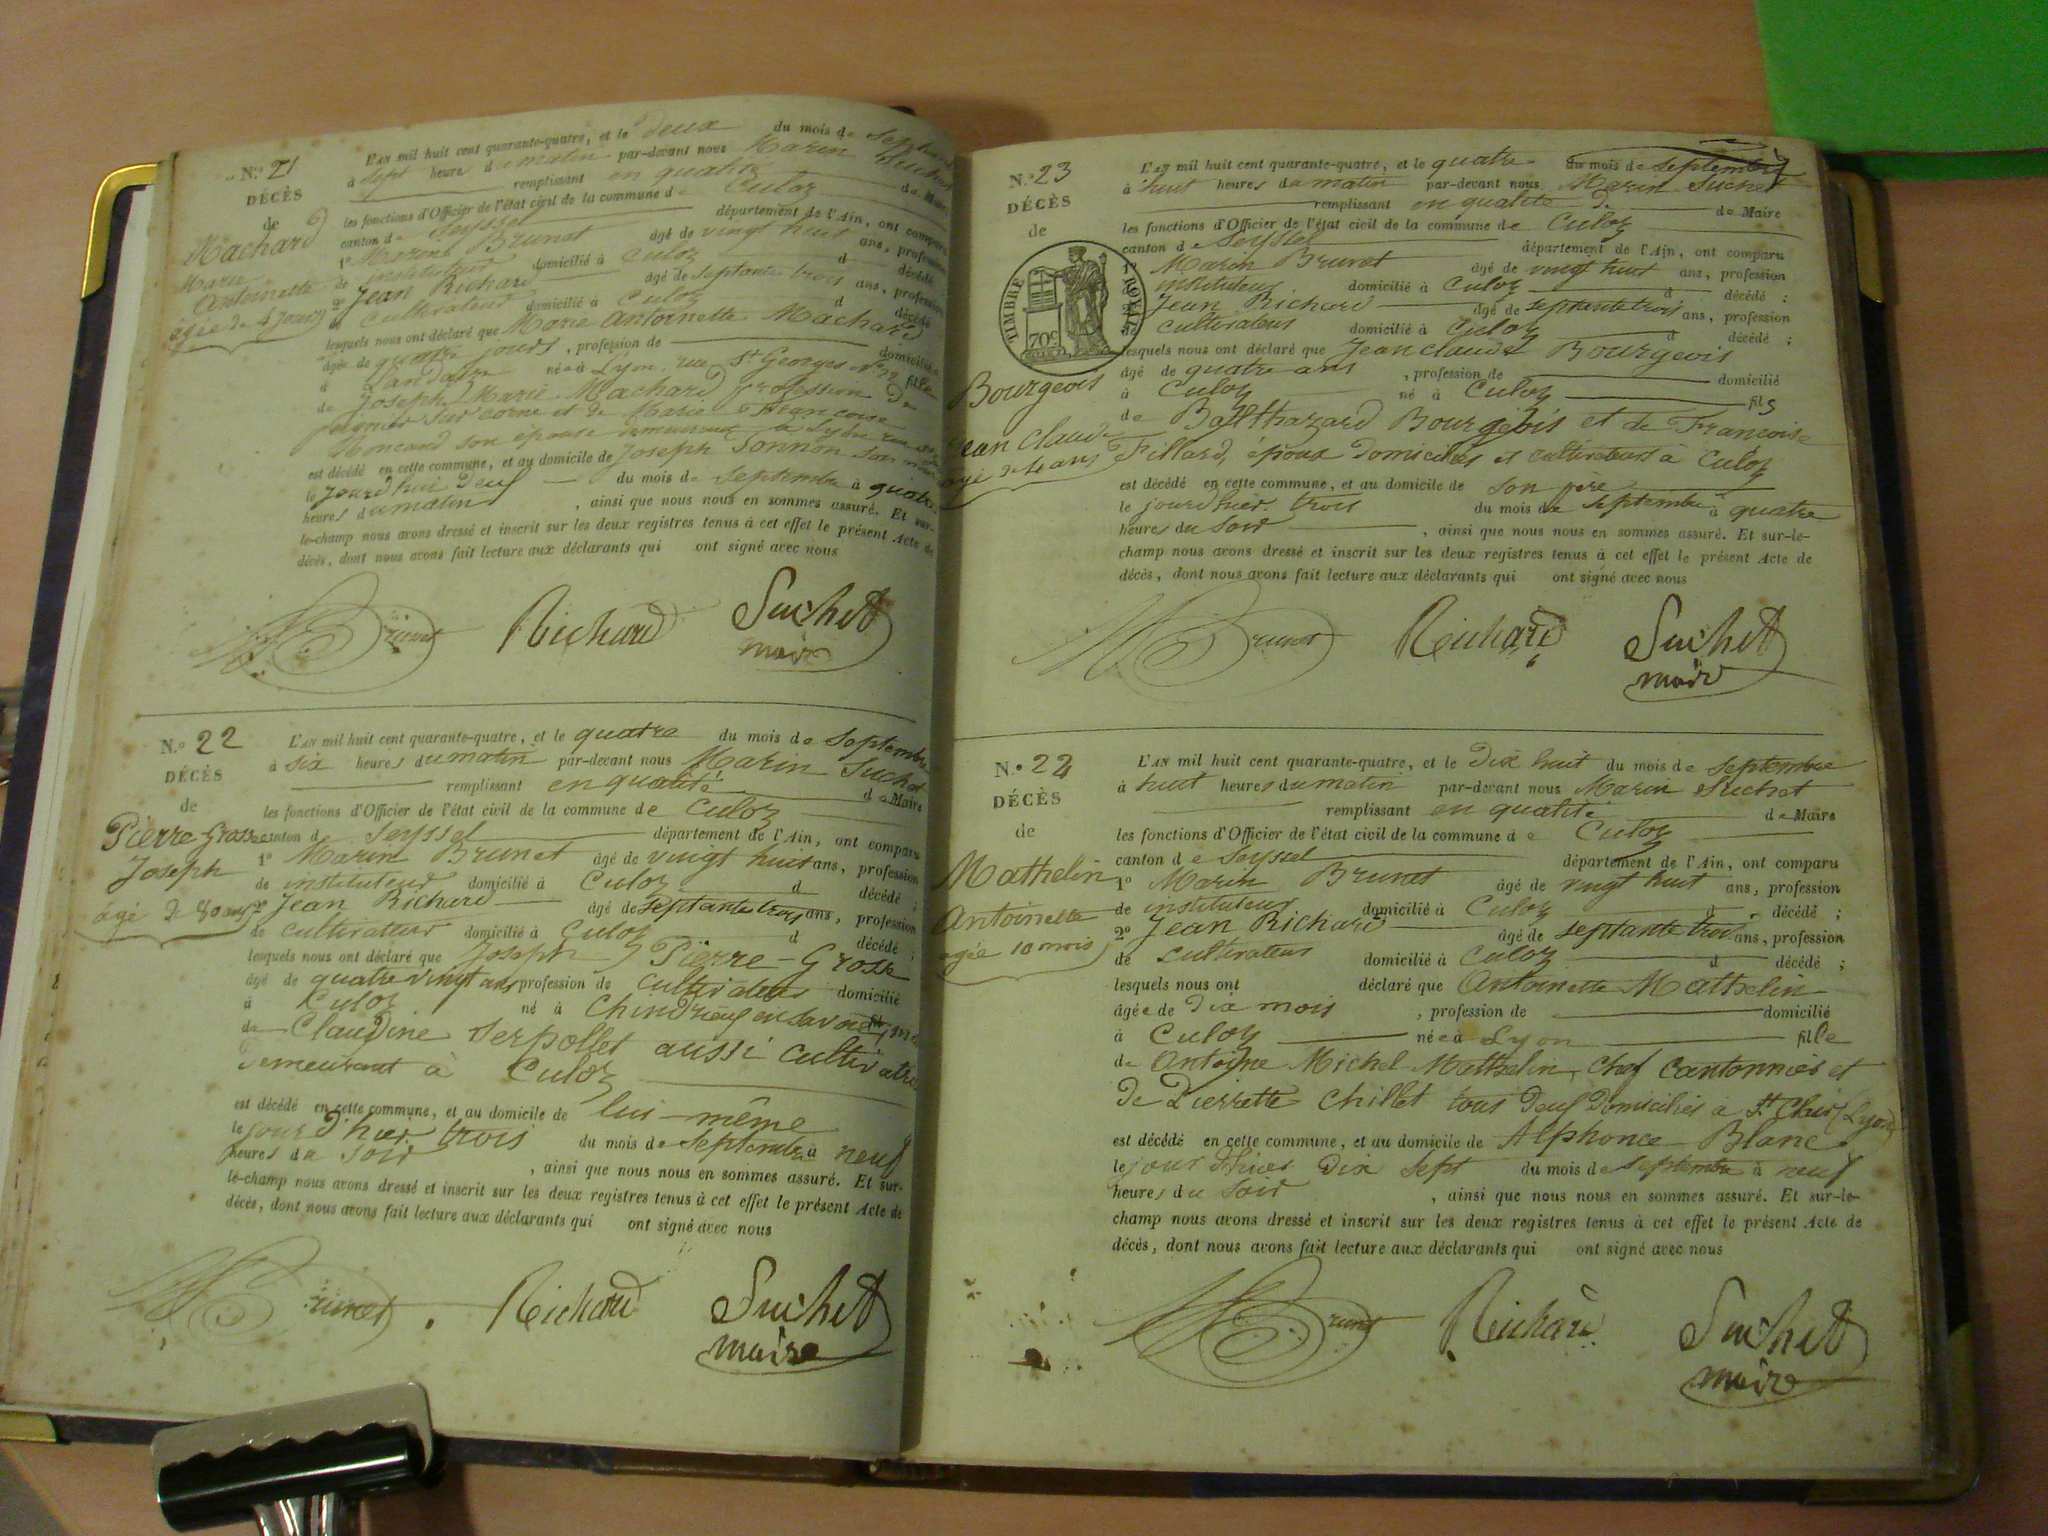 N.° 21
DÉCÈS
de
Machard
Marie
Antoinette
âgée de 4 jours
L'AN mil huit cent quarante-quatre, et le deux du mois de Septembre
à sept heures du matin par-devant nous Marin Suchet
remplissant en qualité de Maire
les fonctions d'Officier de l'état civil de la commune de Culoz
canton de Seyssel département de l'Ain, ont comparu
1° Marin Brunet âgé de vingt huit ans, profession
de instituteur domicilié à Culoz d décédé
2° Jean Richard âgé de septante trois ans, profession
de cultivateur domicilié à Culoz d décédé
lesquels nous ont déclaré que Marie Antoinette Machard
âgée de quatre jours, profession de domiciliée
à née à Lyon, rue St Georges fille
de Joseph Marie Machard profession de
sur corne et de Marie Françoise
son épouse demeurant à Lyon
est décédé en cette commune, et au domicile de Joseph
le jourd'hui deux du mois de septembre à quatre
heures du matin, ainsi que nous nous en sommes assuré. Et sur-
le-champ nous avons dressé et inscrit sur les deux registres tenus à cet effet le présent Acte de
décès, dont nous avons fait lecture aux déclarants qui ont signé avec nous
Brunet Richard Suchet
maire
N.° 22
DÉCÈS
de
Pierre-Grosse
Joseph
âgé de 80 ans
L'AN mil huit cent quarante-quatre, et le quatre du mois de Septembre
à six heures du matin par-devant nous Marin Suchet
remplissant en qualité de Maire
les fonctions d'Officier de l'état civil de la commune de Culoz
canton de Seyssel département de l'Ain, ont comparu
1° Marin Brunet âgé de vingt huit ans, profession
de instituteur domicilié à Culoz d décédé ;
2° Jean Richard âgé de septante trois ans, profession
de cultivateur domicilié à Culoz d décédé ;
lesquels nous ont déclaré que Joseph Pierre-Grosse
âgé de quatre vingt ans profession de cultivateur domicilié
à Culoz né à en Savoie
de Claudine Serpollet aussi cultivatrice
demeurant à Culoz
est décédé en cette commune, et au domicile de lui-même
le jour d'hier trois du mois de septembre à neuf
heures du soir, ainsi que nous nous en sommes assuré. Et sur-
le-champ nous avons dressé et inscrit sur les deux registres tenus à cet effet le présent Acte de
décès, dont nous avons fait lecture aux déclarants qui ont signé avec nous
Brunet Richard Suchet
maire
N.° 23
DÉCÈS
de
TIMBRE ROYAL
70c
Bourgeois
Jean Claude
âgé de 4 ans
L'AN mil huit cent quarante-quatre, et le quatre du mois de septembre
à huit heures du matin par-devant nous Marin Suchet
remplissant en qualité d de Maire
les fonctions d'Officier de l'état civil de la commune de Culoz
canton de Seyssel département de l'Ain, ont comparu
1° Marin Brunet âgé de vingt huit ans, profession
instituteur domicilié à Culoz d décédé ;
Jean Richard âgé de septante trois ans, profession
de cultivateur domicilié à Culoz d décédé ;
lesquels nous ont déclaré que Jean Claude Bourgeois
âgé de quatre ans, profession de domicilié
à Culoz né à Culoz fils
de Balthazard Bourgeois et de Françoise
Fillard, époux domiciliés et cultivateurs à Culoz
est décédé en cette commune, et au domicile de son père
le jour d'hier trois du mois de septembre à quatre
heures du soir, ainsi que nous nous en sommes assuré. Et sur-le-
champ nous avons dressé et inscrit sur les deux registres tenus à cet effet le présent Acte de
décès, dont nous avons fait lecture aux déclarants qui ont signé avec nous
Brunet Richard Suchet
maire
N.° 24
DÉCÈS
de
Mathelin
Antoinette
âgée 10 mois
L'AN mil huit cent quarante-quatre, et le dix huit du mois de septembre
à huit heures du matin par-devant nous Marin Suchet
remplissant en qualité de Maire
les fonctions d'Officier de l'état civil de la commune de Culoz
canton de Seyssel département de l'Ain, ont comparu
1° Marin Brunet âgé de vingt huit ans, profession
de instituteur domicilié à Culoz d décédé ;
2° Jean Richard âgé de septante trois ans, profession
de cultivateur domicilié à Culoz d décédé ;
lesquels nous ont déclaré que Antoinette Mathelin
âgée de dix mois, profession de domicilié
à Culoz née à Lyon fille
de Antoine Michel Mathelin, chef cantonnier et
de Pierrette Chillet tous deux domiciliés à St Clair (Lyon)
est décédé en cette commune, et au domicile de Alphonce Blanc
le jour d'hier dix sept du mois de septembre à neuf
heures du soir, ainsi que nous nous en sommes assuré. Et sur-le-
champ nous avons dressé et inscrit sur les deux registres tenus à cet effet le présent Acte de
décès, dont nous avons fait lecture aux déclarants qui ont signé avec nous
Brunet Richard Suchet
maire